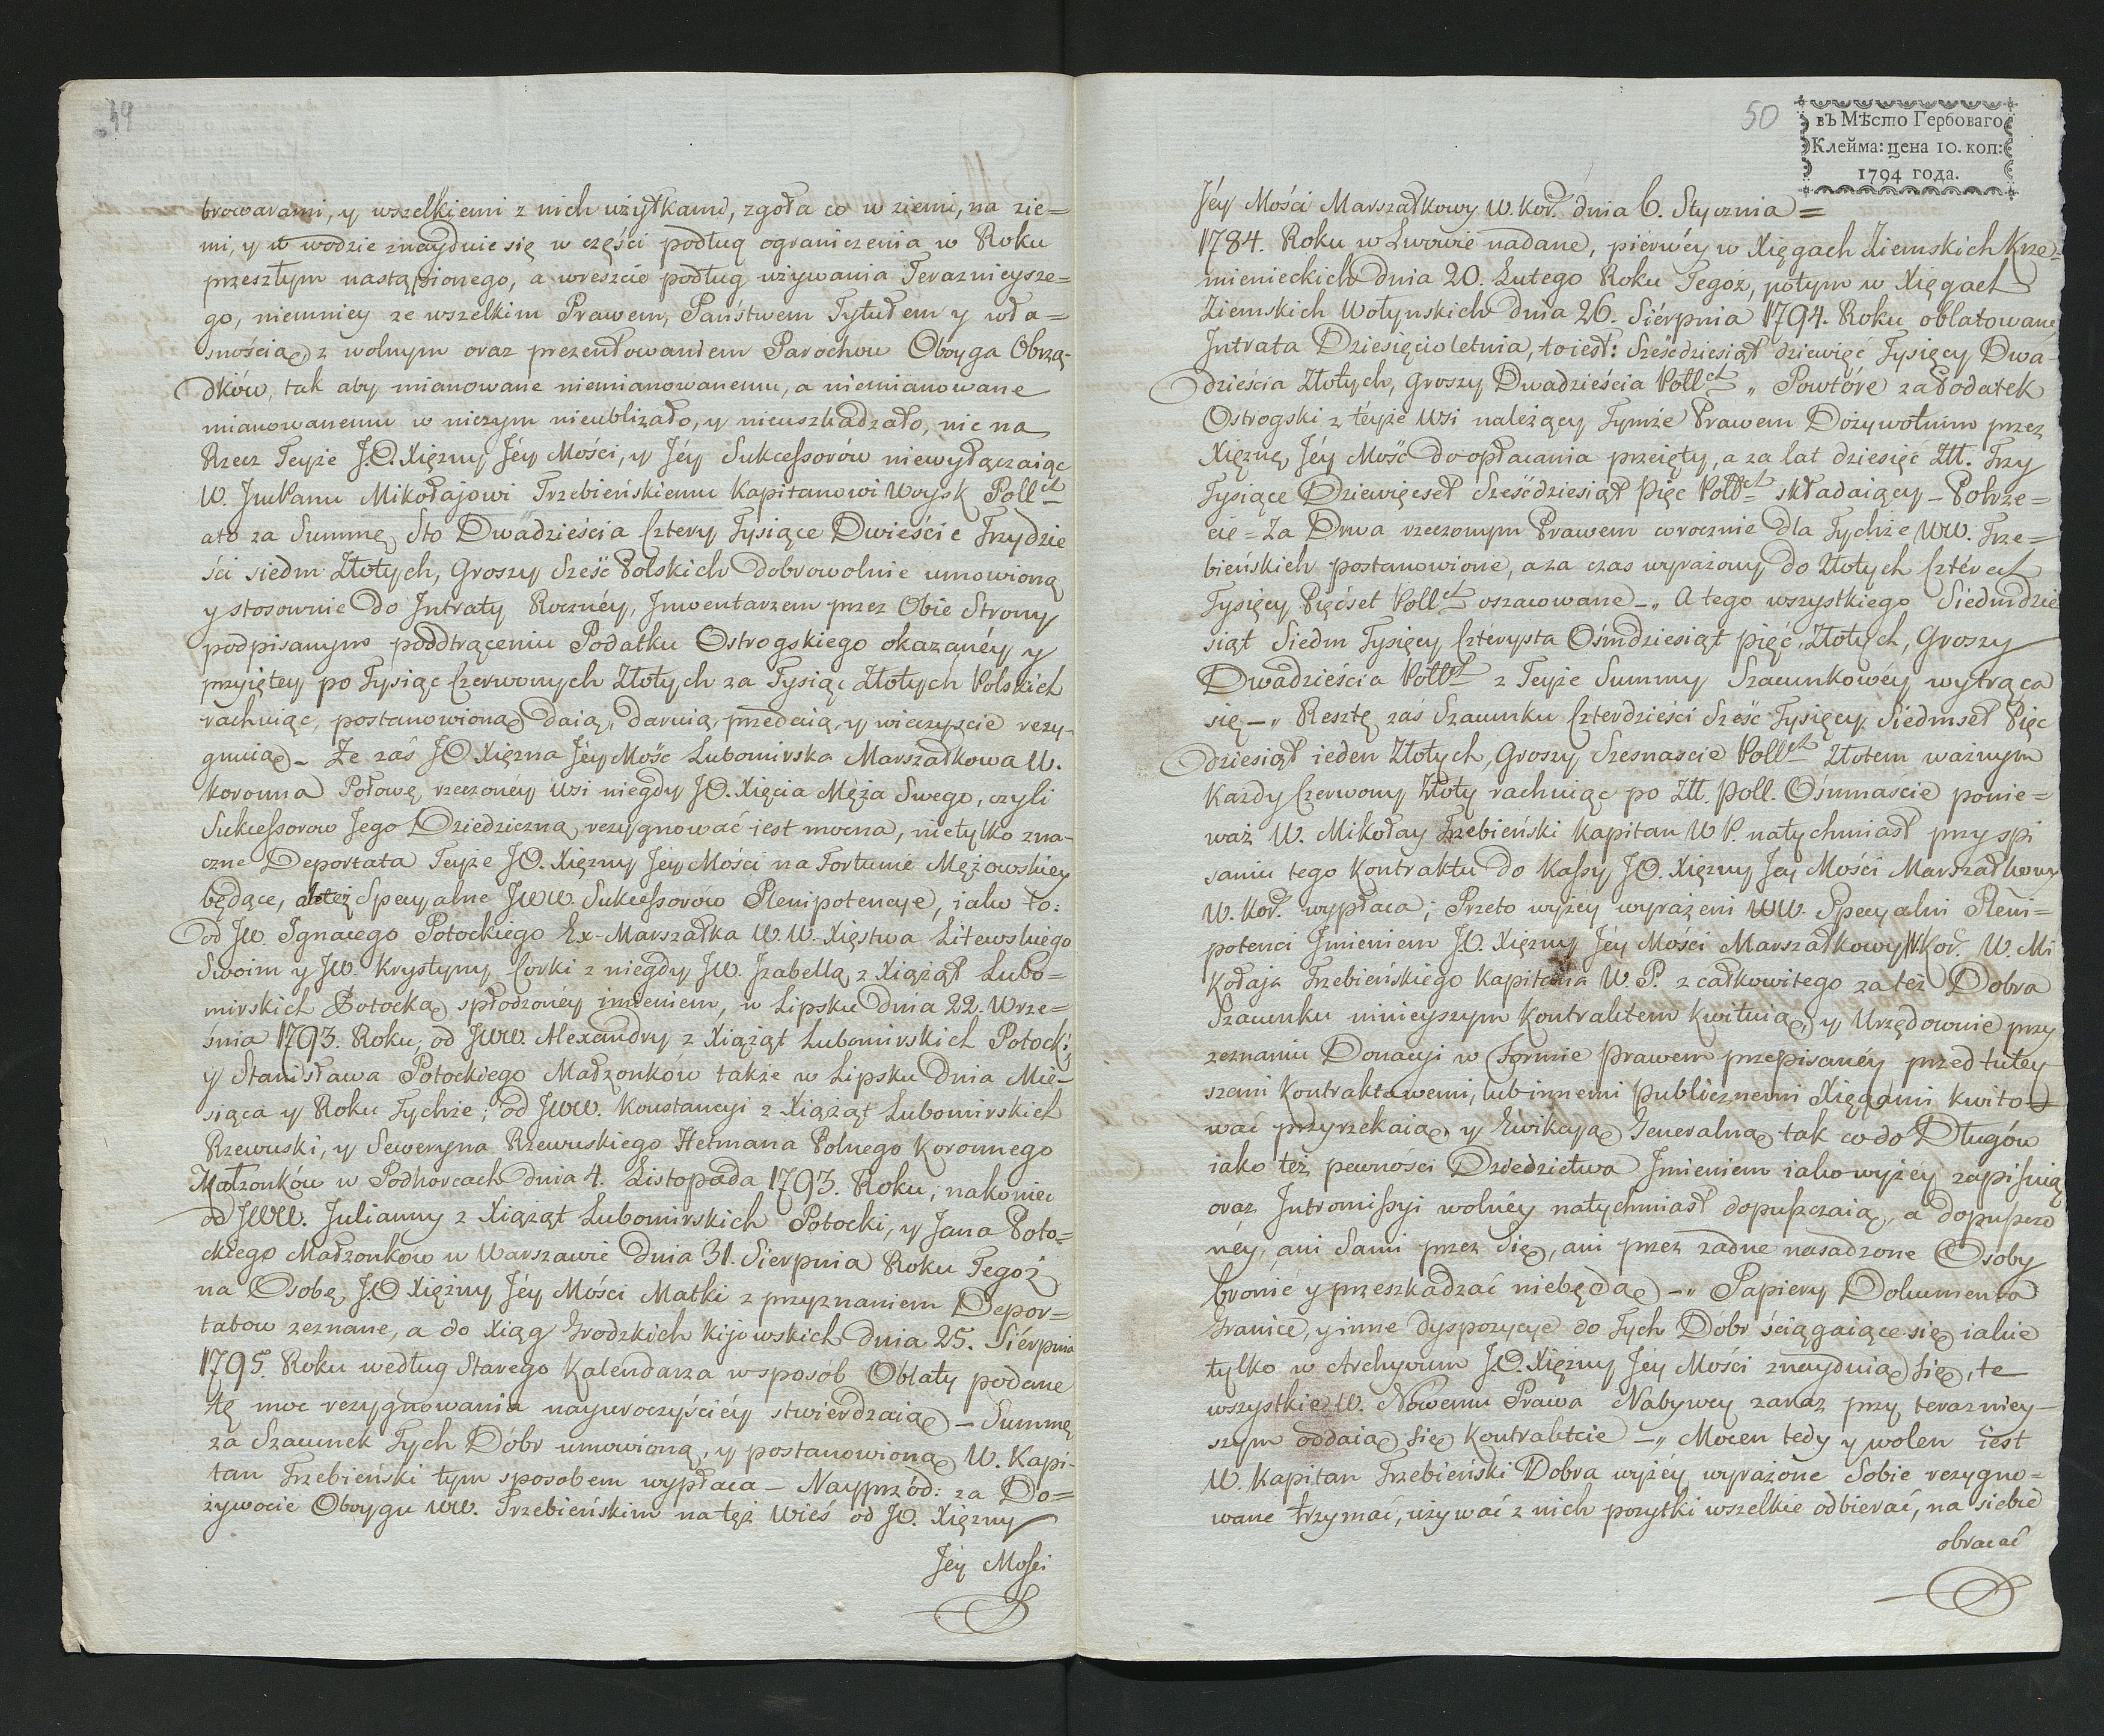 49
browarami, y wszelkiemi z nich użytkami, zgoła co w ziemi, na zie=
mi, y w wodzie znayduie się w części podług ograniczenia w Roku
przeszłym nastąpionego, a wreszcie podług używania Teraznieysze=
go, niemniey ze wszelkim Prawem, Państwem Tytułem y wła=
snością, z wolnym oraz prezentowaniem Parochow Oboyga Obrzą-
dków, tak aby mianowane niemianowanemu, a niemianowane
mianowanemu w niczym nieubliżało, y nieuszkadzało, nic na
Rzecz Teyże J.O. Xiężny Jéy Mości, y Jéy Sukcessorów niewyłączaiąc
W. Jmć Panu Mikołajowi Trzebieńskiemu Kapitanowi Woysk Pollch
ato za Summę Sto Dwadzieścia Cztery Tysiące Dwieście Trzydzie
ści siedm Złotych, Groszy Sześć Polskich dobrowolnie umowioną
y stosownie do Jntraty Rocznéy, Jnwentarzem przez Obie Strony
podpisanym poddtrąceniu Podatku Ostrogskiego okazanéy y
przyiętey po Tysiąc Czerwonych Złotych za Tysiąc Złotych Polskich
rachuiąc, postanowioną daią, daruią, przedaią, y wieczyście rezy-
gnuią – Że zaś JO Xiężna Jéy Mość Lubomirska Marszałkowa W.
Koronna Połowę rzeczonéy Wsi niegdy JO. Xięcia Męża Swego, czyli
Sukcessorow Jego Dziedziczną rezygnować iest mocna, nietylko zna-
czne Deportata Teyże JO. Xiężny Jéy Mości na Fortunie Mężowskiey
będące, ależ Specyalne JWW. Sukcessorów Plenipotencye, iako to:
od JW. Jgnacego Potockiego Ex-Marszałka W. W. Xięstwa Litewskiego
Swoim y JW. Krystyny Corki z niegdy JW. Jzabellą z Xiążąt Lubo=
mirskich Potocką spłodzonéy imieniem, w Lipsku dnia 22. Wrze=
śnia 1793. Roku; od JWW. Alexandry z Xiążąt Lubomirskich Potocki,
y Stanisława Potockiego Małżonków także w Lipsku Dnia Mie-
siąca y Roku Tychże; od JWW. Konstancyi z Xiążąt Lubomirskich
Rzewuski, y Seweryna Rzewuskiego Hetmana Polnego Koronnego
Małżonków w Podhorcach dnia 4. Listopada 1793. Roku; nakoniec
od JWW. Julianny z Xiążąt Lubomirskich Potocki, y Jana Poto=
ckiego Małżonkow w Warszawie Dnia 31. Sierpnia Roku Tegoż
na Osobę J.O Xiężny Jéy Mości Matki z przyznaniem Depor=
tatow zeznane, a do Xiąg Grodzkich Kijowskich dnia 25. Sierpnia
1795. Roku według Starego Kalendarza w sposób Oblaty podane
tę moc rezygnowania nayuroczyściéy stwierdzaią – Summę
za Szacunek Tych Dóbr umowioną, y postanowioną W. Kapi-
tan Trzebieński tym sposobem wypłaca – Nayprzód: za Do=
żywocie Oboygu WW. Trzebieńskim na tęż Wieś od JO. Xiężny
Jéy Mości
50
въ Мѣсто Гербоваго
Клейма: цена 10. коп:
1794 года.
Jéy Mości Marszałkowy W. Kor. dnia 6. Stycznia =
1784. Roku w Lwowie nadane, pierwéy w Xięgach Ziemskich Krze=
mienieckich dnia 20. Lutego Roku Tegoż, potym w Xięgach
Ziemskich Wołynskich dnia 26. Sierpnia 1794. Roku oblatowane
Jntrata Dziesięcioletnia, toiest: Sześćdziesiąt dziewięć Tysięcy Dwa-
dzieścia Złotych, Groszy Dwadzieścia Pollch „ Powtóre za Podatek
Ostrogski z téyże Wsi należący Tymże Prawem Dożywotnim przez
Xiężnę Jéy Mość do opłacania przeięty, a za lat dziesięć Złł. Trzy
Tysiące Dziewięćset Sześćdziesiąt Pięć Pollch składaiący – Potrze=
cie = Za Drwa rzeczonym Prawem corocznie dla Tychże WW. Trze=
bieńskich postanowione, a za czas wyrażony do Złotych Czterech
Tysięcy Pięćset Pollch oszacowane –„ A tego wszystkiego Siedmdzie
siąt Siedm Tysięcy Czterysta Ośmdziesiąt Pięć Złotych, Groszy
Dwadzieścia Pollch z Teyże Summy Szacunkowéy wytrąca
się –„ Resztę zaś Szacunku Czterdzieści Sześć Tysięcy Siedmset Pięc
dziesiąt ieden Złotych, Groszy Szesnaście Pollch Złotem ważnym
Każdy Czerwony Złoty rachuiąc po Złł. Poll. Ośmnaście ponie=
waż W. Mikołay Trzebieński Kapitan W P. natychmiast przy spi
saniu tego Kontraktu do Kassy JO. Xiężny Jéy Mości Marszałkowy
W. Kor. wypłaca; Przeto wyżéy wyrażeni WW. Specyalni Pleni=
potenci Jmieniem JO. Xiężny Jéy Mości Marszałkowy W Kor. W. Mi
kołaja Trzebieńskiego Kapitana W. P. z całkowitego za też Dobra
Szacunku ninieyszym Kontraktem kwituią, y Urzędownie przy
zeznaniu Donacyi w Formie Prawem przepisanéy przed tutey-
szemi Kontraktowemi, lub innemi Publicznemi Xięgami kwito=
wać przyrzekaią, y Ewikcyą Generalną tak co do Długów
iako też pewności Dziedzictwa Jmieniem iako wyżéy zapisuią
oraz Jntromissyi wolnéy natychmiast dopuszczaią, a dopuszczo
néy, ani Sami przez Się, ani przez żadne nasadzone Osoby
bronić y przeszkadzać niebędą –„ Papiery Dokumenta
Granice, y inne dyspozycye do Tych Dóbr ściągaiące się iakie
tylko w Archywum J.O. Xiężny Jéy Mości znayduią się, te
wszystkie W. Nowemu Prawa Nabywcy zaraz przy terazniey-
szym oddaią się Kontraktcie –„ Mocen tedy y wolen iest
W. Kapitan Trzebieński Dobra wyżéy wyrażone Sobie rezygno=
wane trzymać, używać z nich pożytki wszelkie odbierać, na siebie
obracać